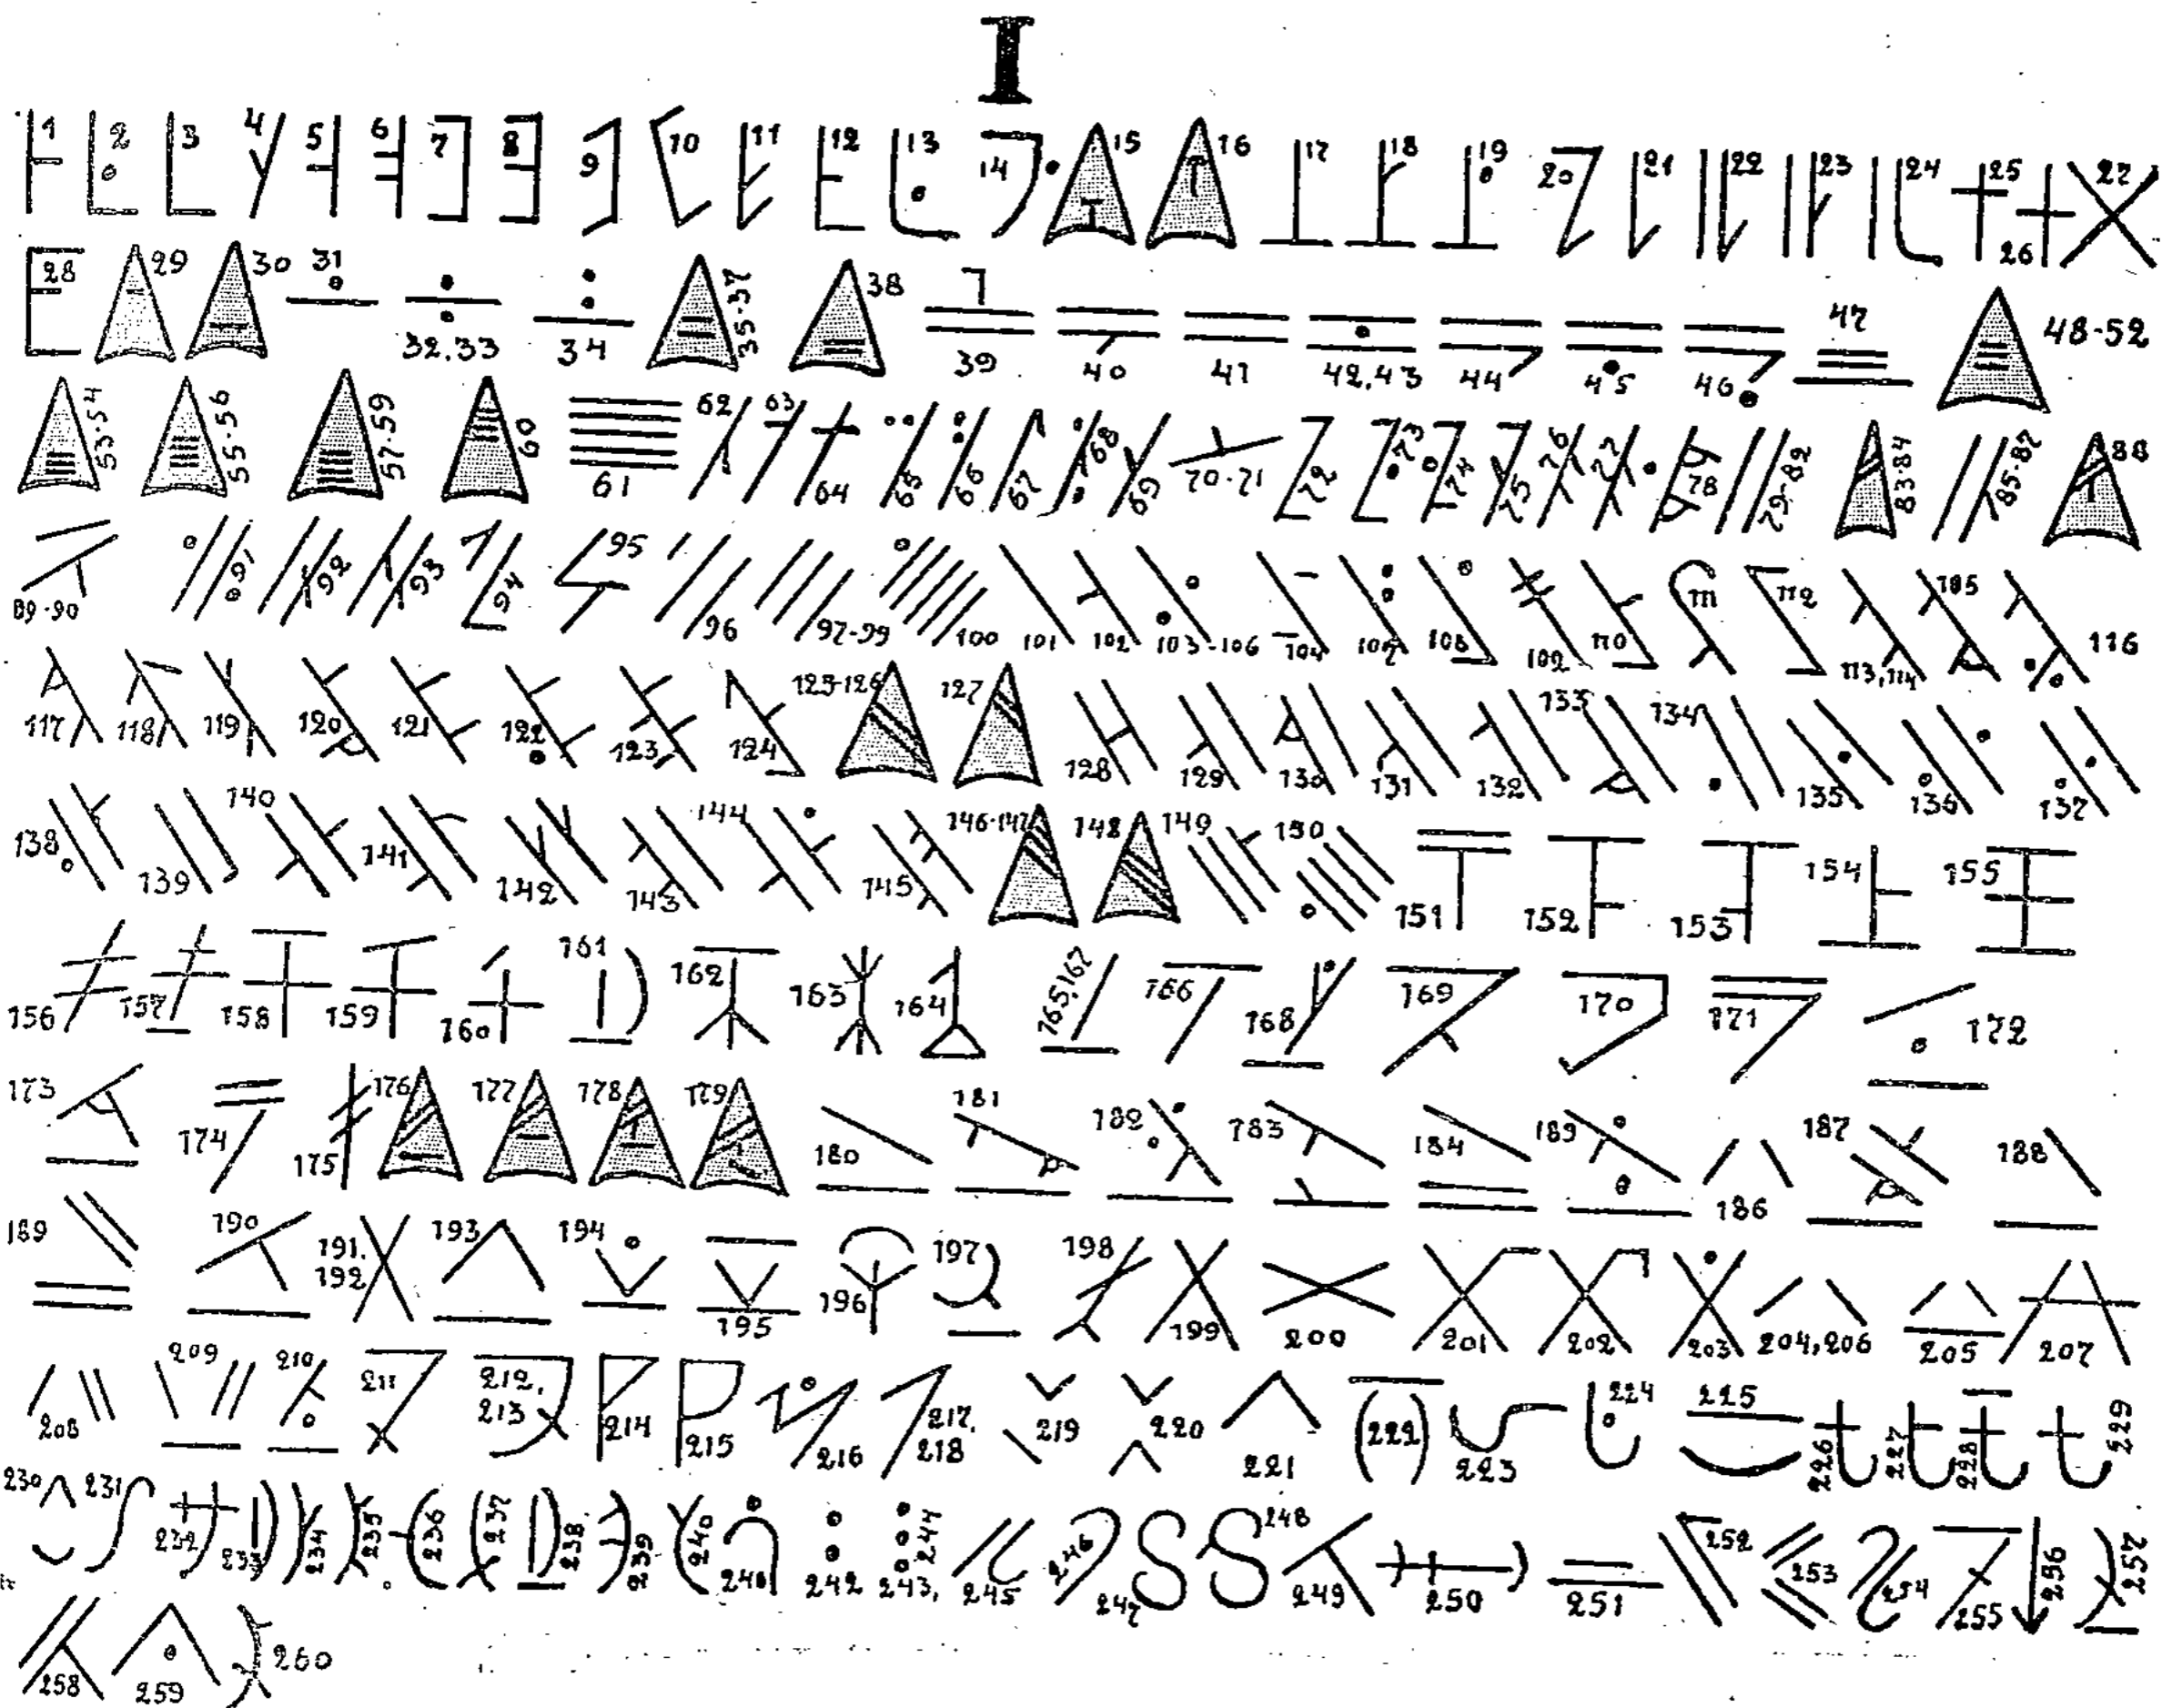 I
1 2 3 4 5 6 7 8 9 10 11 12 13 14 15 16 17 18 19 20 21 22 23 24 25 26 27
28 29 30 31 32.33 34 35-37 38 39 40 41 42,43 44 45 46 47 48-52
53-54 55-56 57-59 60 61 62 63 64 65 66 67 68 69 70-71 72 73 74 75 76 77 78 79-82 83-84 85-87 88
89-90 91 92 93 94 95 96 97-99 100 101 102 103-106 104 107 108 109 110 111 112 113,114 115 116
117 118 119 120 121 122 123 124 125-126 127 128 129 130 131 132 133 134 135 136 137
138 139 140 141 142 143 144 145 146-147 148 149 150 151 152 153 154 155
156 157 158 159 160 161 162 163 164 165,167 166 168 169 170 171 172
173 174 175 176 177 178 179 180 181 182 183 184 185 186 187 188
189 190 191. 192 193 194 195 196 197 198 199 200 201 202 203 204,206 205 207
208 209 210 211 212, 213 214 215 216 217. 218 219 220 221 222 223 224 225 226 227 228 229
230 231 232 233 234 235 236 237 238. 239 240 241 242 243, 244 245 246 247 248 249 250 251 252 253 254 255 256 257
258 259 260